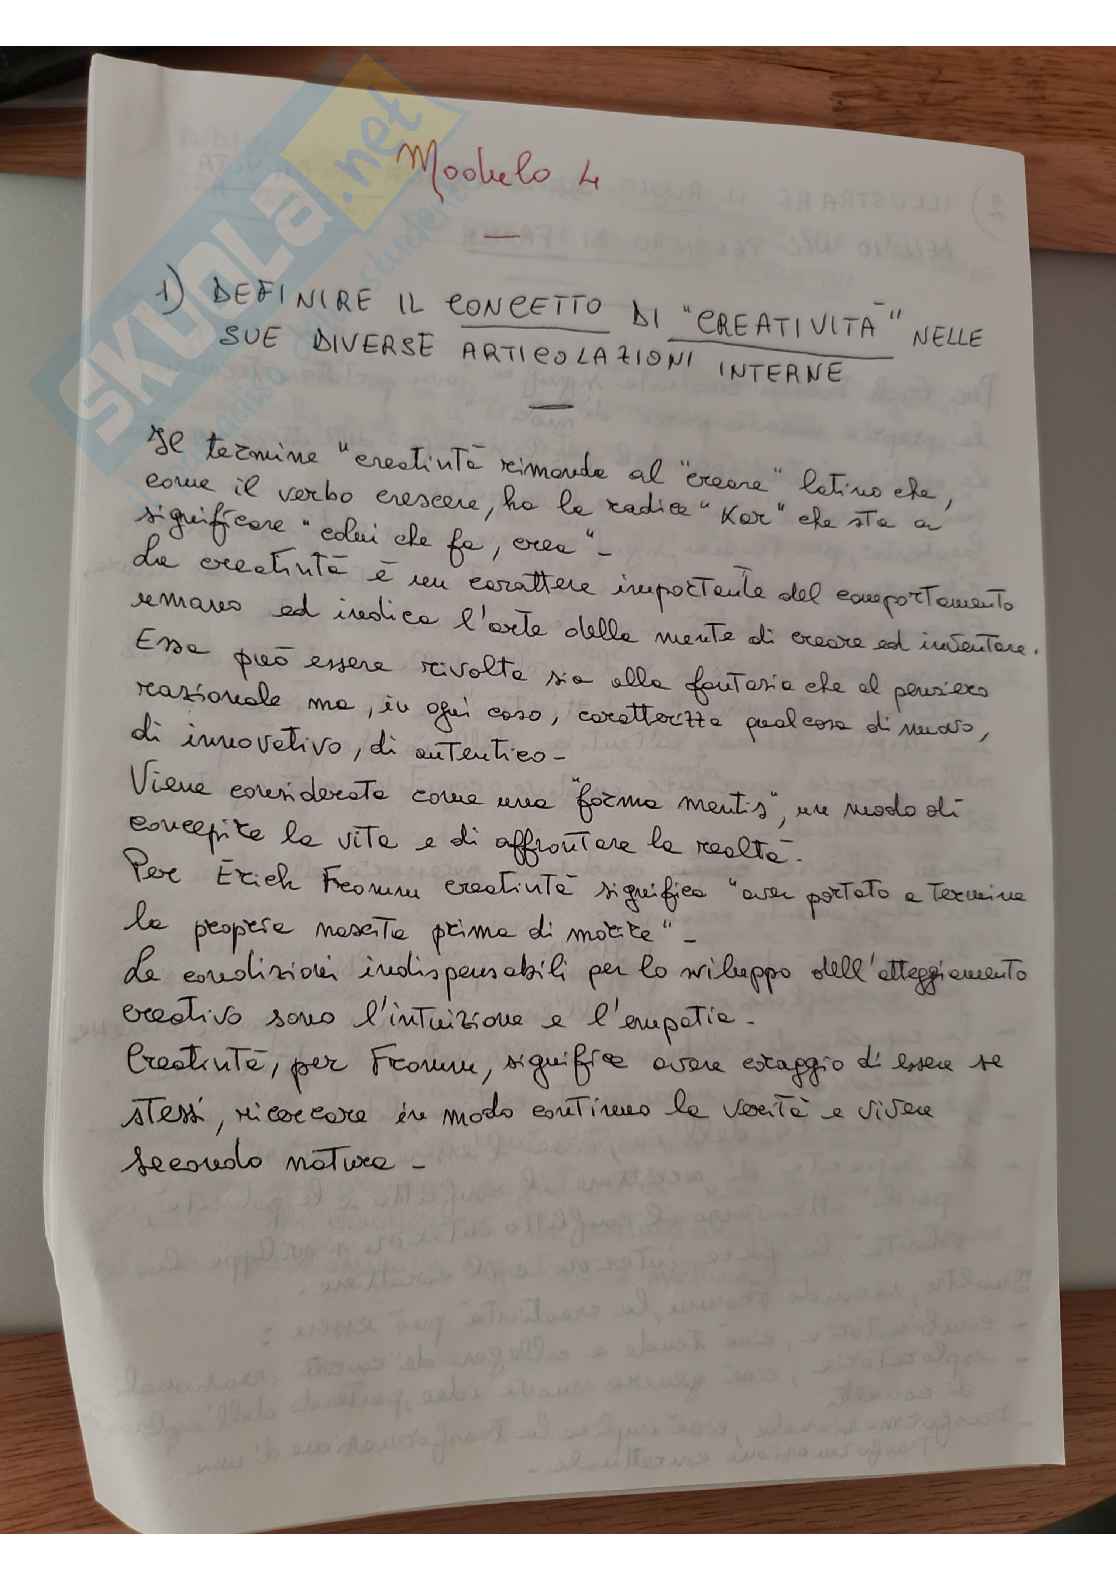 Modulo 4
1) DEFINIRE IL CONCETTO DI "CREATIVITÀ" NELLE
SUE DIVERSE ARTICOLAZIONI INTERNE
Il termine "creatività rimanda al "creare" latino che,
come il verbo crescere, ha la radice "Kar" che sta a
significare "colui che fa, crea" -
La creatività è un carattere importante del comportamento
umano ed indica l'arte della mente di creare ed inventare.
Essa può essere rivolta sia alla fantasia che al pensiero
razionale ma, in ogni caso, caratterizza qualcosa di nuovo,
di innovativo, di autentico -
Viene considerata come una "forma mentis", un modo di
concepire la vita e di affrontare la realtà.
Per Erich Fromm creatività significa "aver portato a termine
la propria nascita prima di morire" -
Le condizioni indispensabili per lo sviluppo dell'atteggiamento
creativo sono l'intuizione e l'empatia -
Creatività, per Fromm, significa avere coraggio di essere se
stessi, ricercare in modo continuo la verità e vivere
secondo natura -
SKUOLA.net